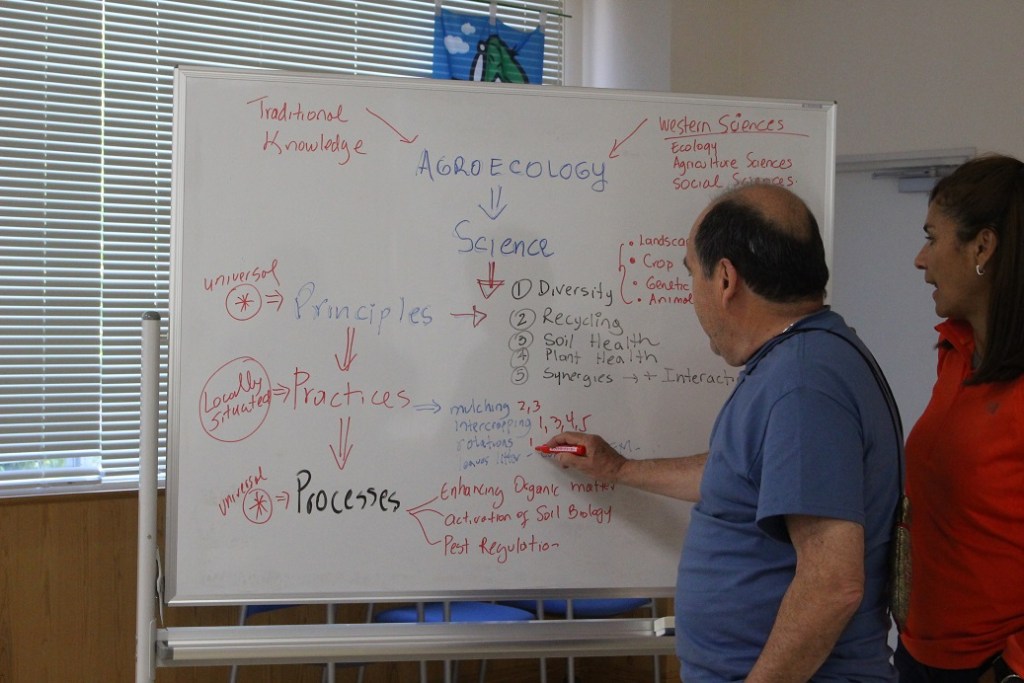 Traditional
Knowledge
Western Sciences
Ecology
Agriculture Sciences
Social Sciences
AGROECOLOGY
Science
universal
*
Principles
1 Diversity
2 Recycling
3 Soil Health
4 Plant Health
5 Synergies → + Interacti
• Landsca
• Crop
• Genetic
• Animal
Locally
Situated
Practices
mulching 2,3
Intercropping 1,3,4,5
rotations 1
leaves litter -
universal
*
Processes
Enhancing Organic matt
activation of Soil Biology
Pest Regulation